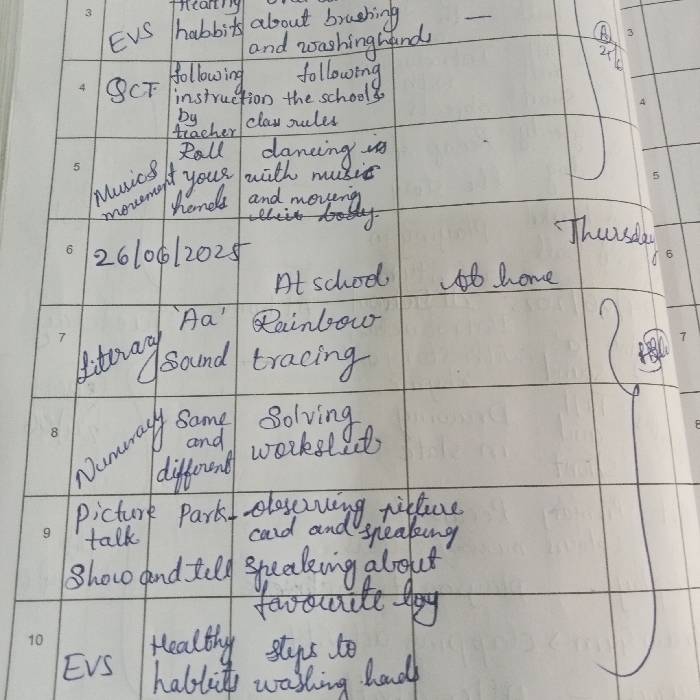 3 Healthy
EVS habbits about brushing —
and washing hands
4 following following
SCT instruction the school &
by
teacher class rules
5 Roll dancing in
Music & your with music
movement hands and moving
their body.
6 26/06/2025 Thursday
At school. At home
7 'Aa' Rainbow
Literary Sound tracing
8 Numeracy Same Solving
and worksheet
different
9 Picture Park - observing picture
talk card and speaking
Show and tell speaking about
favourite toy
10 Healthy steps to
EVS habbits washing hands
3
4
5
6
7
8